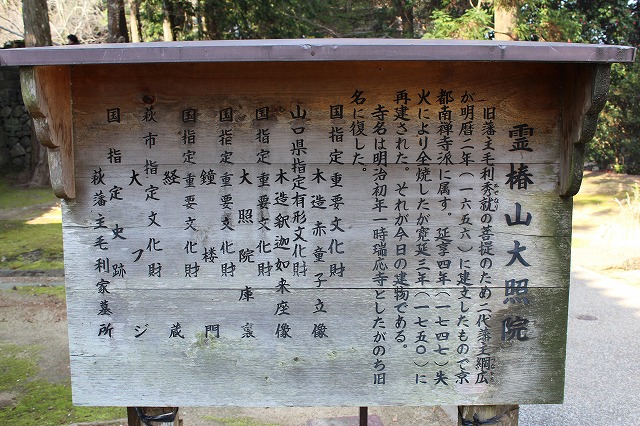 霊椿山大照院
旧藩主毛利秀就の菩提のため二代藩主綱広
が明暦二年（一六五六）に建立したもので京
都南禅寺派に属す。延享四年（一七四七）失
火により全焼したが寛延三年（一七五〇）に
再建された。それが今日の建物である。
寺名は明治初年一時瑞応寺としたがのち旧
名に復した。
国指定重要文化財
木造赤童子立像
山口県指定有形文化財
木造釈迦如来座像
国指定重要文化財
大照院庫裏
国指定重要文化財
鐘楼門
国指定重要文化財
経蔵
萩市指定文化財
大フジ
国指定史跡
萩藩主毛利家墓所